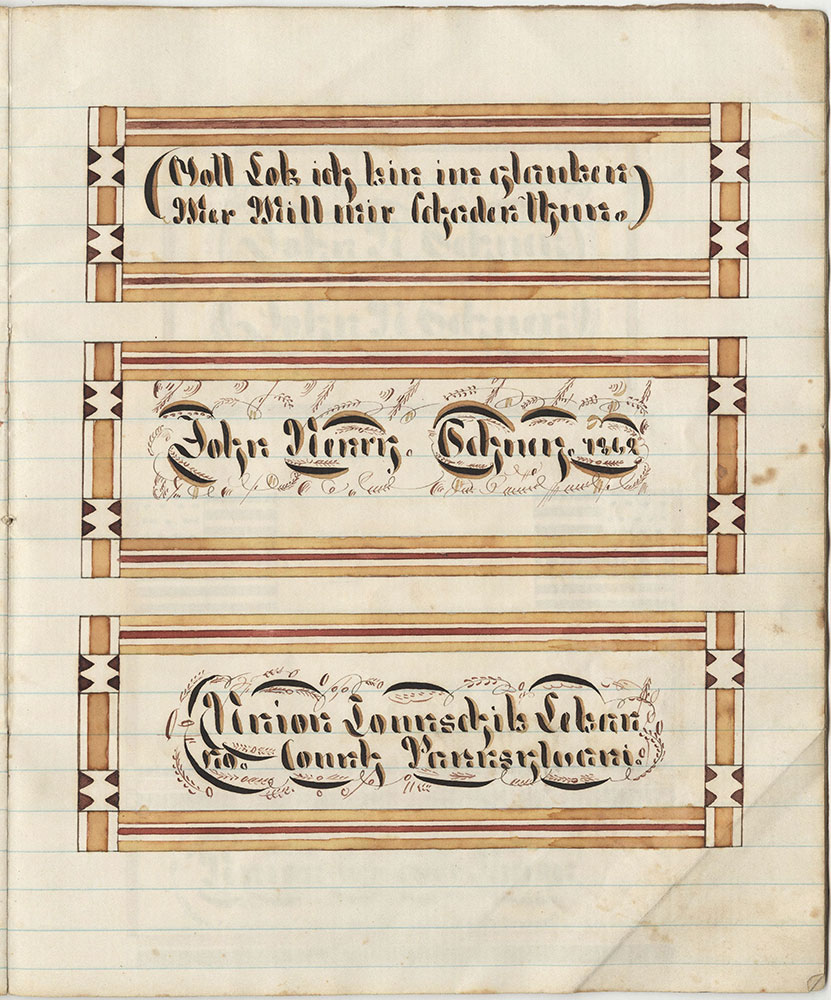 (Gott Lob ich bin im glauben
Wer Will mir Schaden Thun.)
John Henry. Schuy. 1862
Union Tounschib Leban
no. County Pannsylvani.